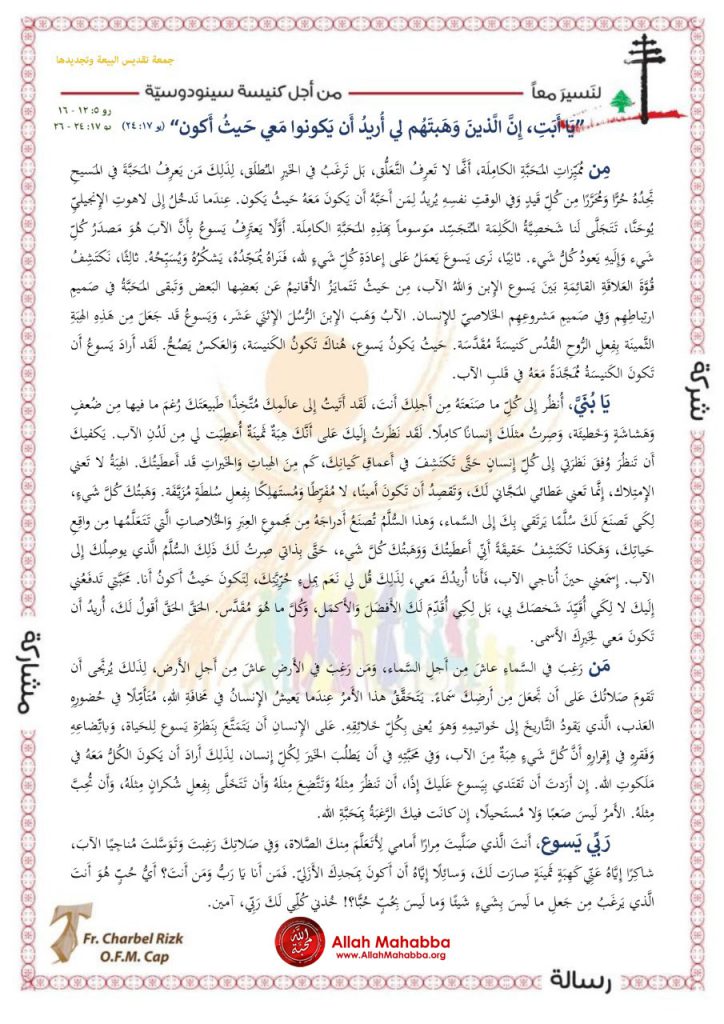 جمعة تقديس البيعة وتجديدها
لنَسيرَ معاً من أجل كنيسة سينودوسيّة
رو ٥: ١٢ - ١٦
يو ١٧: ٢٤ - ٢٦
”يَا أَبَتِ، إنَّ الَّذينَ وَهَبتَهُم لي أُريدُ أَن يَكونوا مَعي حَيثُ أَكون“ (يو ١٧: ٢٤)
مِن مُمَيِّزات المَحَبَّةِ الكامِلَة، أَنَّها لا تَعرِفُ التَّعَلُّق، بَل تَرغَبُ في الخَيرِ المُطلَق، لِذَلِكَ مَن يَعرِفُ المَحَبَّةَ في المَسيحِ
تَجِدُهُ حُرًّا وَمُحَرَّرًا مِن كُلِّ قَيدٍ وَفي الوَقتِ نَفسِهِ يُريدُ لِمَن أَحَبَّهُ أَن يَكونَ مَعَهُ حَيثُ يَكون. عِندَما نَدخُلُ إلى لاهوتِ الإنجيليِّ
يُوحَنَّا، تَتَجَلَّى لَنا شَخصِيَّةُ الكَلِمَة المُتَجَسِّد مَوسوماً بِهَذِهِ المَحَبَّةِ الكامِلَة. أَوَّلًا يَعتَرِفُ يَسوعُ بِأَنَّ الآبَ هُوَ مَصدَرُ كُلِّ
شَيء وَإِلَيهِ يَعودُ كُلُّ شَيء. ثانِيًا، نَرى يَسوعَ يَعمَلُ عَلى إعادَةِ كُلِّ شَيءٍ لله، فَنَراهُ يُمَجِّدُهُ، يَشكُرُهُ وَيُسَبِّحُهُ. ثالِثًا، نَكتَشِفُ
قُوَّةَ العَلاقَةِ القائِمَةِ بَينَ يَسوع الإبن وَاللهُ الآب، مِن حَيثُ تَتَمايَزُ الأَقانيمُ عَن بَعضِها البَعض وَتَبقى المَحَبَّةُ في صَميمِ
ارتِباطِهِم وَفي صَميمِ مَشروعِهِم الخَلاصيِّ للإنسان. الآبُ وَهَبَ الإبنَ الرُّسُلَ الإثنَي عَشَر، وَيَسوعُ قَد جَعَلَ مِن هَذِهِ الهِبَةِ
الثَّمينَة بِفِعلِ الرُّوحِ القُدُس كَنيسَةً مُقَدَّسَة. حَيثُ يَكونُ يَسوع، هُناكَ تَكونُ الكَنيسَة، وَالعَكسُ يَصُحُّ. لَقَد أَرادَ يَسوعُ أَن
تَكونَ الكَنيسَةُ مُمَجَّدَةً مَعَهُ في قَلبِ الآب.
يَا بُنَيَّ، أُنظُر إلى كُلِّ ما صَنَعتُهُ مِن أَجلِكَ أَنتَ، لَقَد أَتَيتُ إلى عالَمِكَ مُتَّخِذًا طَبيعَتَكَ رُغمَ ما فيها مِن ضُعفٍ
وَهَشاشَةٍ وَخَطيئَة، وَصِرتُ مِثلَكَ إنسانًا كامِلًا. لَقَد نَظَرتُ إلَيكَ عَلى أَنَّكَ هِبَةٌ ثَمينَةٌ أُعطِيَت لي مِن لَدُنِ الآب. يَكفيكَ
أَن تَنظُرَ وُفقَ نَظرَتي إلى كُلِّ إنسانٍ حَتَّى تَكتَشِفَ في أَعماقِ كَيانِكَ، كَم مِنَ الهِباتِ وَالخَيراتِ قَد أَعطَيتُكَ. الهِبَةُ لا تَعني
الإمتِلاك، إنَّما تَعني عَطائي المَجَّانيَّ لَكَ، وَتَقصِدُ أَن تَكونَ أَمينًا، لا مُفَرِّطًا وَمُستَهلِكًا بِفِعلِ سُلطَةٍ مُزَيَّفَة. وَهَبتُكَ كُلَّ شَيءٍ،
لِكَي تَصنَعَ لَكَ سُلَّمًا يَرتَقي بِكَ إلى السَّماء، وَهذا السُّلَّمُ تُصنَعُ أَدراجُهُ مِن مَجموعِ العِبَرِ وَالخُلاصاتِ الَّتي تَتَعَلَّمُها مِن واقِعِ
حَياتِكَ، وَهَكَذا تَكتَشِفُ حَقيقَةَ أَنّي أَعطَيتُكَ وَوَهَبتُكَ كُلَّ شَيء، حَتَّى بِذاتي صِرتُ لَكَ ذَلِكَ السُّلَّمُ الَّذي يوصِلُكَ إلى
الآب. إسمَعني حينَ أُناجي الآب، فَأَنا أُريدُكَ مَعي، لِذَلِكَ قُل لي نَعَم بِملءِ حُرِّيَّتِكَ، لِتَكونَ حَيثُ أَكونُ أَنا. مَحَبَّتي تَدفَعُني
إلَيكَ لا لِكَي أُقَيِّدَ شَخصَكَ بي، بَل لِكَي أُقَدِّمَ لَكَ الأَفضَلَ وَالأَكمَل، وَكُلَّ ما هُوَ مُقَدَّس. الحَقَّ الحَقَّ أَقولُ لَكَ، أُريدُ أَن
تَكونَ مَعي لِخَيرِكَ الأَسمى.
مَن رَغِبَ في السَّماءِ عاشَ مِن أَجلِ السَّماء، وَمَن رَغِبَ في الأَرضِ عاشَ مِن أَجلِ الأَرض، لِذَلِكَ يُرتَجى أَن
تَقومَ صَلاتُكَ عَلى أَن تَجعَلَ مِن أَرضِكَ سَماءً. يَتَحَقَّقُ هذا الأَمرُ عِندَما يَعيشُ الإنسانُ في مَخافَةِ اللهِ، مُتَأَمِّلًا في حُضورِهِ
العَذب، الَّذي يَقودُ التَّاريخَ إلى خَواتيمِهِ وَهوَ يُعنى بِكُلِّ خَلائِقِهِ. عَلى الإنسانِ أَن يَتَمَتَّعَ بِنَظرَة يَسوع للحَياة، وَباتِّضاعِهِ
وَفَقرِهِ في إقرارِهِ أَنَّ كُلَّ شَيءٍ هِبَةٌ مِنَ الآب، وَفي مَحَبَّتِهِ في أَن يَطلُبَ الخَيرَ لِكُلِّ إنسان، لِذَلِكَ أَرادَ أَن يَكونَ الكُلُّ مَعَهُ في
مَلَكوتِ الله. إن أَرَدتَ أَن تَقتَدي بِيَسوع عَلَيكَ إذًا، أَن تَنظُرَ مِثلَهُ وَتَتَّضِعَ مِثلَهُ وَأَن تَتَخَلَّى بِفِعلِ شُكرانٍ مِثلَهُ، وَأَن تُحِبَّ
مِثلَهُ. الأَمرُ لَيسَ صَعبًا وَلا مُستَحيلًا، إن كانَت فيكَ الرَّغبَةُ بِمَحَبَّةِ الله.
رَبِّي يَسوع، أَنتَ الَّذي صَلَّيتَ مِرارًا أَمامي لِأَتَعَلَّمَ مِنكَ الصَّلاة، وَفي صَلاتِكَ رَغِبتَ وَتَوَسَّلتَ مُناجِيًا الآبَ،
شاكِرًا إيَّاهُ عَنّي كَهِبَةٍ ثَمينَةٍ صارَت لَكَ، وَسائِلًا إيَّاهُ أَن أَكونَ بِمَجدِكَ الأَزَليّ. فَمَن أَنا يَا رَبُّ وَمَن أَنتَ؟ أَيُّ حُبٍّ هُوَ أَنتَ
الَّذي يَرغَبُ مِن جَعلِ ما لَيسَ بِشَيءٍ شَيئًا وَما لَيسَ بِحُبٍّ حُبًّا؟! خُذني كُلّي لَكَ رَبّي، آمين.
شركة
مشاركة
رسالة
Fr. Charbel Rizk
O.F.M. Cap
الله محبة
Allah Mahabba
www.AllahMahabba.org